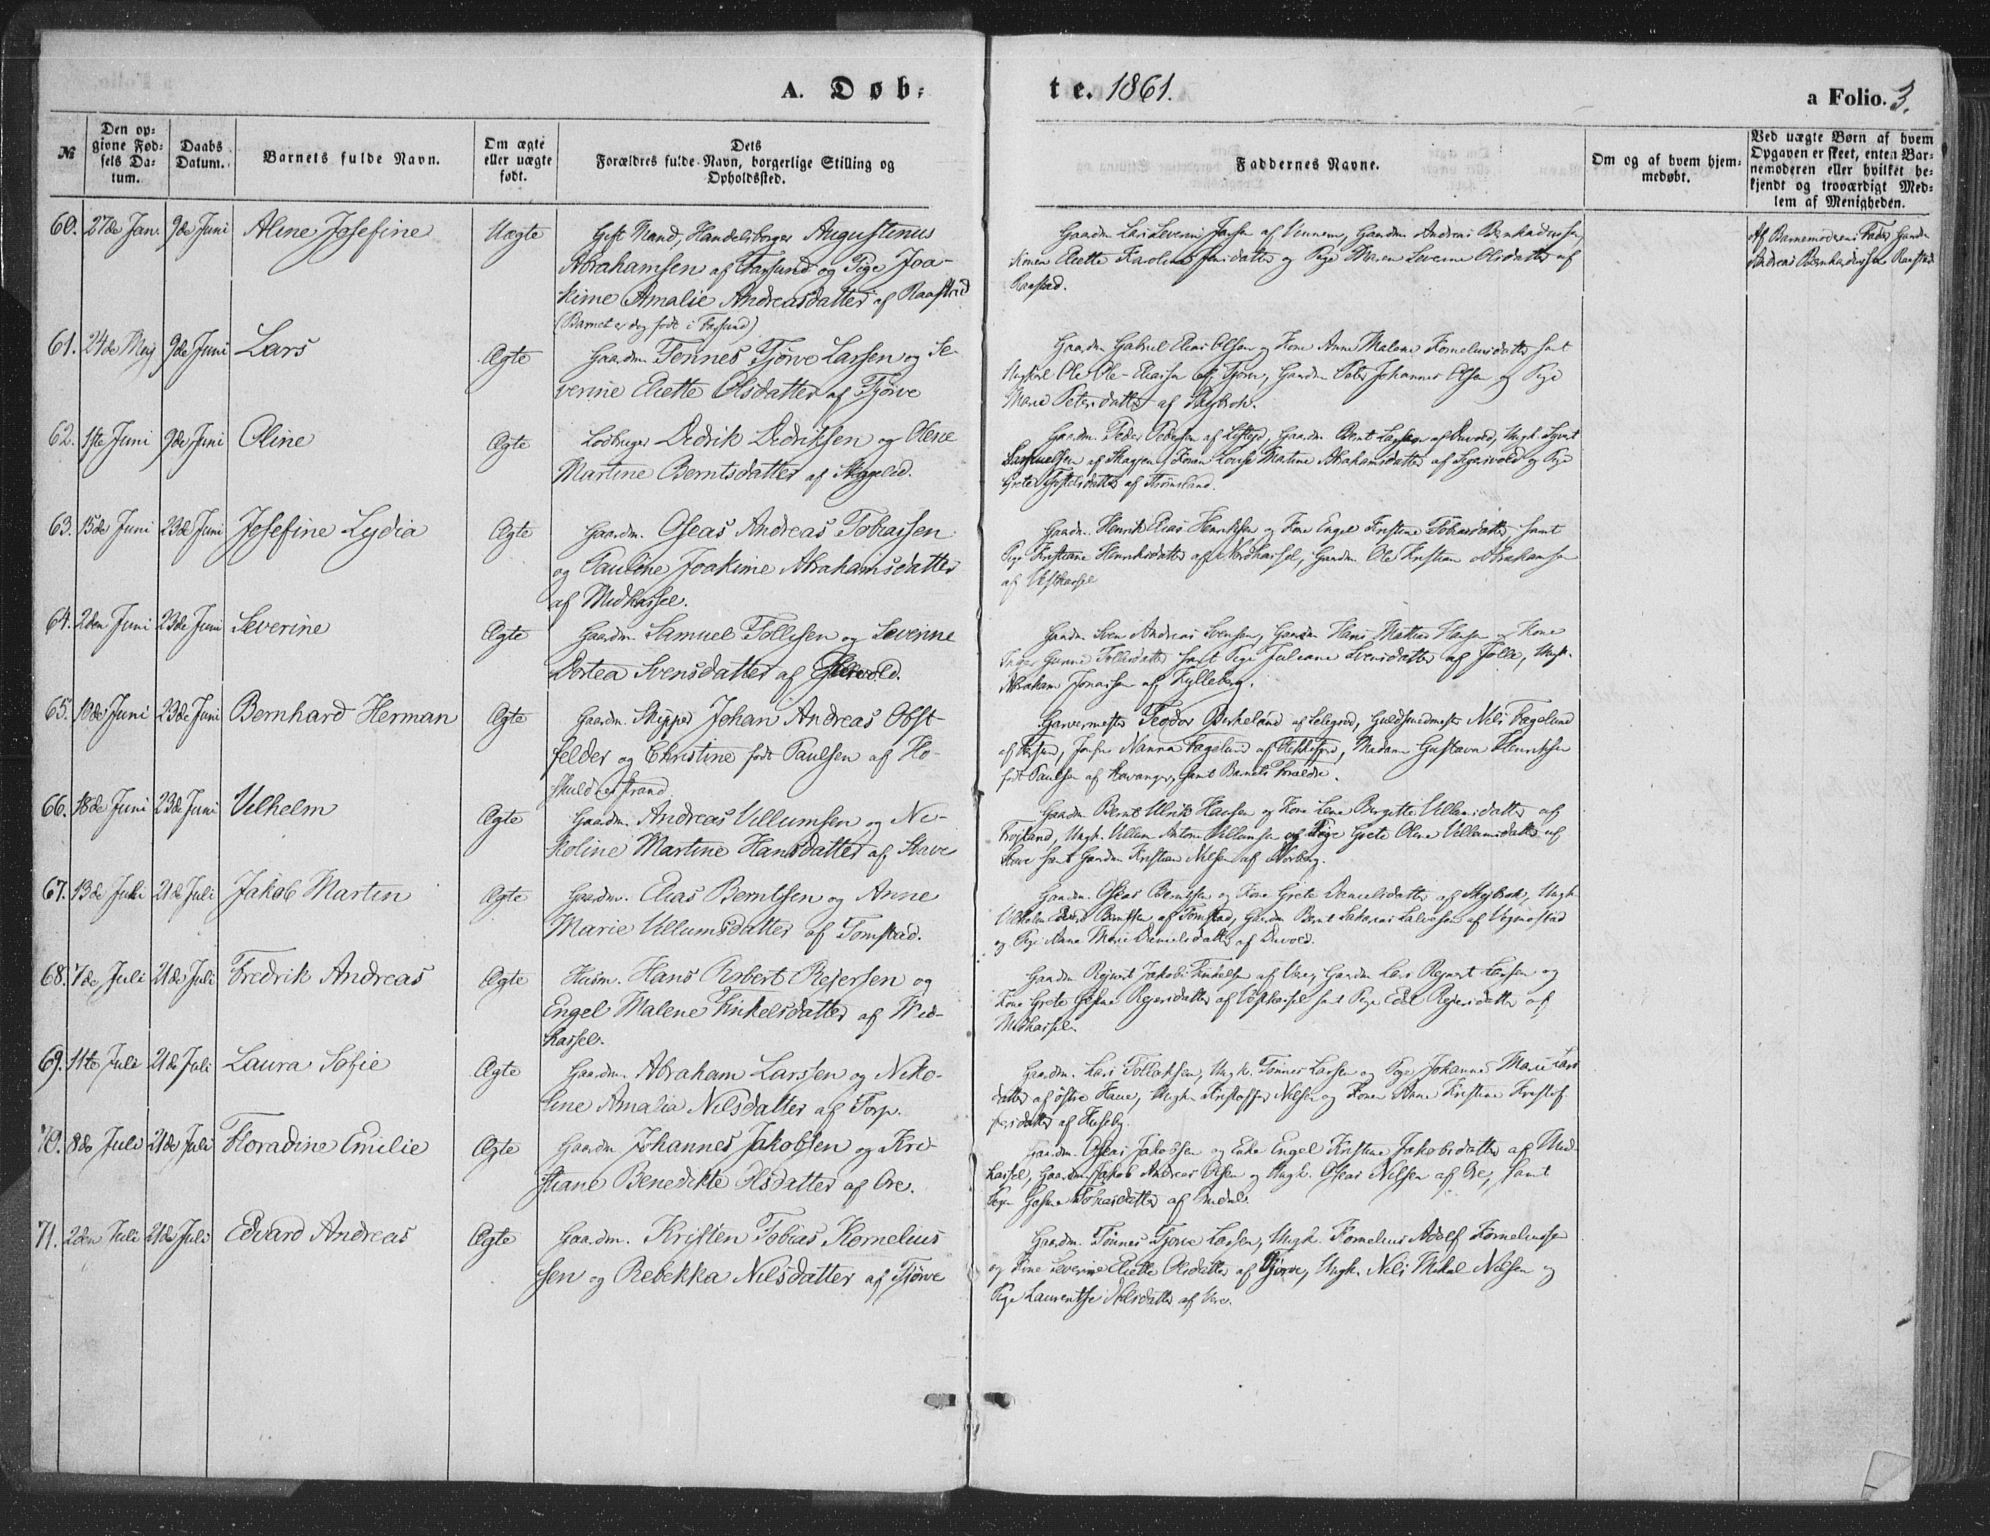 A. Døb-
te. 1861.
a Folio. 3.
№
Den op-
givne Fød-
sels Da-
tum.
Daabs
Datum.
Barnets fulde Navn.
Om ægte
eller uægte
født.
Dets
Forældres fulde Navn, borgerlige Stilling og
Opholdssted.
Faddernes Navne.
Om og af hvem hjem-
medøbt.
Ved uægte Børn af hvem
Opgaven er skeet, enten Bar-
nemoderen eller hvilket be-
kjendt og troværdigt Med-
lem af Menigheden.
60. 27de Jan. 9de Juni Aline Josefine Uægte Gift Mand, Handelsborger Augustinus
Abrahamsen af Farsund og Pige Joa-
kime Amalie Andreasdatter af Raastad
(Barnet er dog født i Farsund)
Gaardm. Lars Severin Jansen af Vennem, Gaardm. Andreas Bernhardussen,
Konen Elette Karoline datter og Pige Maren Severine Olsdatter af
Raastad.
Af Barnemoderens Fader Gaardm.
Andreas Bernhardussen Raastad
61. 24de Maj 9de Juni Lars Ægte Gaardm. Tønnes Tjørve Larssen og Se-
verine Elette Olsdatter af Tjørve
Gaardm. Gabriel Elias Olsen og Kone Anne Malene Kornelusdatter samt
Ungkarl Ole Ole-Eliassen af Tjørve, Gaardm. Peter Johannes Olsen og Pige
Marie Petersdatter af
62. 1ste Juni 9de Juni Oline Ægte Losbruger Dedrik Dedriksen og Olene
Martine Berntsdatter af
Gaardm. Peder Pedersen af Gaardm. Bernt Larssen af Duvold, Ungk.
Samuelsen af Skagen, Konen Lovise Martine Abrahamsdatter af og Pige
Grete datter af Strømsland.
63. 15de Juni 23de Juni Josefine Lydia Ægte Gaardm. Oseas Andreas Tobiassen
og Pauline Joakime Abrahamsdatter
af Midhassel.
Gaardm. Henrik Elias Henriksen og Kone Engel Kristine Tobiasdatter samt
Pige Kristiane Henriksdatter af Nordhassel, Gaardm. Ole Kristian Abrahamsen
af Vesthassel
64. 2den Juni 23de Juni Severine Ægte Gaardm. Samuel Tollisen og Severine
Dortea Svensdatter af
Gaardm. Sven Andreas Svensen, Gaardm. Hans Mathias Hansen og Kone
Inger Gunne Tollisdatter samt Pige Juliane Svensdatter af Jølle, Ungk.
Abraham Jonassen af Kylleberg.
65. 10de Juni 23de Juni Bernhard Herman Ægte Gaardm. Skipper Johan Andreas Obst-
felder og Christine født Paulsen af Ho-
skuldsstrand
Garvermester Teodor Birkeland af Guldsmedmester Nils Fagelund
af Farsund, Jomfru Nanna Fagelund af Flekkefjord, Madam Gustava Henriksen
født Paulsen af Stavanger, samt Barnets Forældre.
66. 18de Juni 23de Juni Vilhelm Ægte Gaardm. Andreas Villumsen og Ni-
koline Martine Hansdatter af Stave
Gaardm. Bernt Ulrik Hansen og Kone Lene Bergitte Villumsdatter af
Ungk. Villum Anton Villumsen og Pige Grete Olene Villumsdatter af
Stave samt Gaardm. Kristian Nilsen af Norberg.
67. 13de Juli 21de Juli Jakob Martin Ægte Gaardm. Elias Berntsen og Anne
Marie Villumsdatter af Tomstad.
Gaardm. Oseas Berntsen og Kone Grete Danielsdatter af Ungk.
Vilhelm Berntsen af Tomstad, Gaardm. Bernt Sakarias Salvesen af Vigmostad
og Pige Anne Marie Danielsdatter af Duvold.
68. 7de Juli 21de Juli Fredrik Andreas Ægte Husm. Hans Robert Rejersen og
Engel Malene Tinkelsdatter af Mid-
hassel.
Gaardm. Rejnert Jakob Tinkelsen af Vere, Gaardm. Lars Rejnert Larsen og
Kone Grete Rejersdatter af Vesthassel samt Pige Edel Rejersdatter af
Midhassel
69. 11te Juli 21de Juli Laura Sofie Ægte Gaardm. Abraham Larssen og Niko-
line Amalia Nilsdatter af Torp.
Gaardm. Lars Tollaksen, Ungk. Tønnes Larsen og Pige Johanne Marie Lars-
datter af østre Haue, Ungk. Kristoffer Nilsen og Konen Anne Kristine Kristof-
fersdatter af Huseby.
70. 8de Juli 21de Juli Floradine Emilie Ægte Gaardm. Johannes Jakobsen og Kri-
stiane Benedikte Olsdatter af Ore.
Gaardm. Oseas Jakobsen og Enke Engel Kristine Jakobsdatter af Mid-
hassel, Gaardm. Jakob Andreas Olsen og Ungk. Oseas Nilsen af Ore, samt
Pige Tobiasdatter af
71. 2den Juli 21de Juli Edvard Andreas Ægte Gaardm. Kristen Tobias Kornelius-
sen og Rebekka Nilsdatter af Tjørve
Gaardm. Tønnes Tjørve Larsen, Ungk. Kornelius Adolf Korneliussen
og Kone Severine Elette Olsdatter af Tjørve, Ungk. Nils Mikal Nilsen og
Pige Laurentse Nilsdatter af Ore.